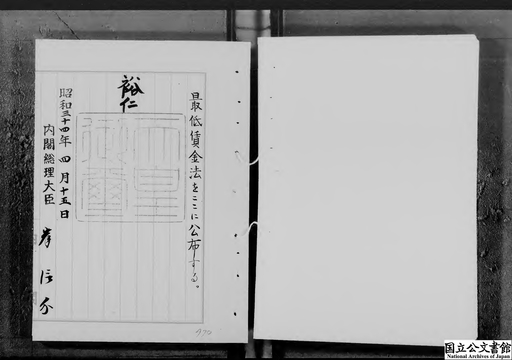 最低賃金法をここに公布する。
裕仁
昭和三十四年四月十五日
内閣総理大臣 岸信介
国立公文書館
National Archives of Japan